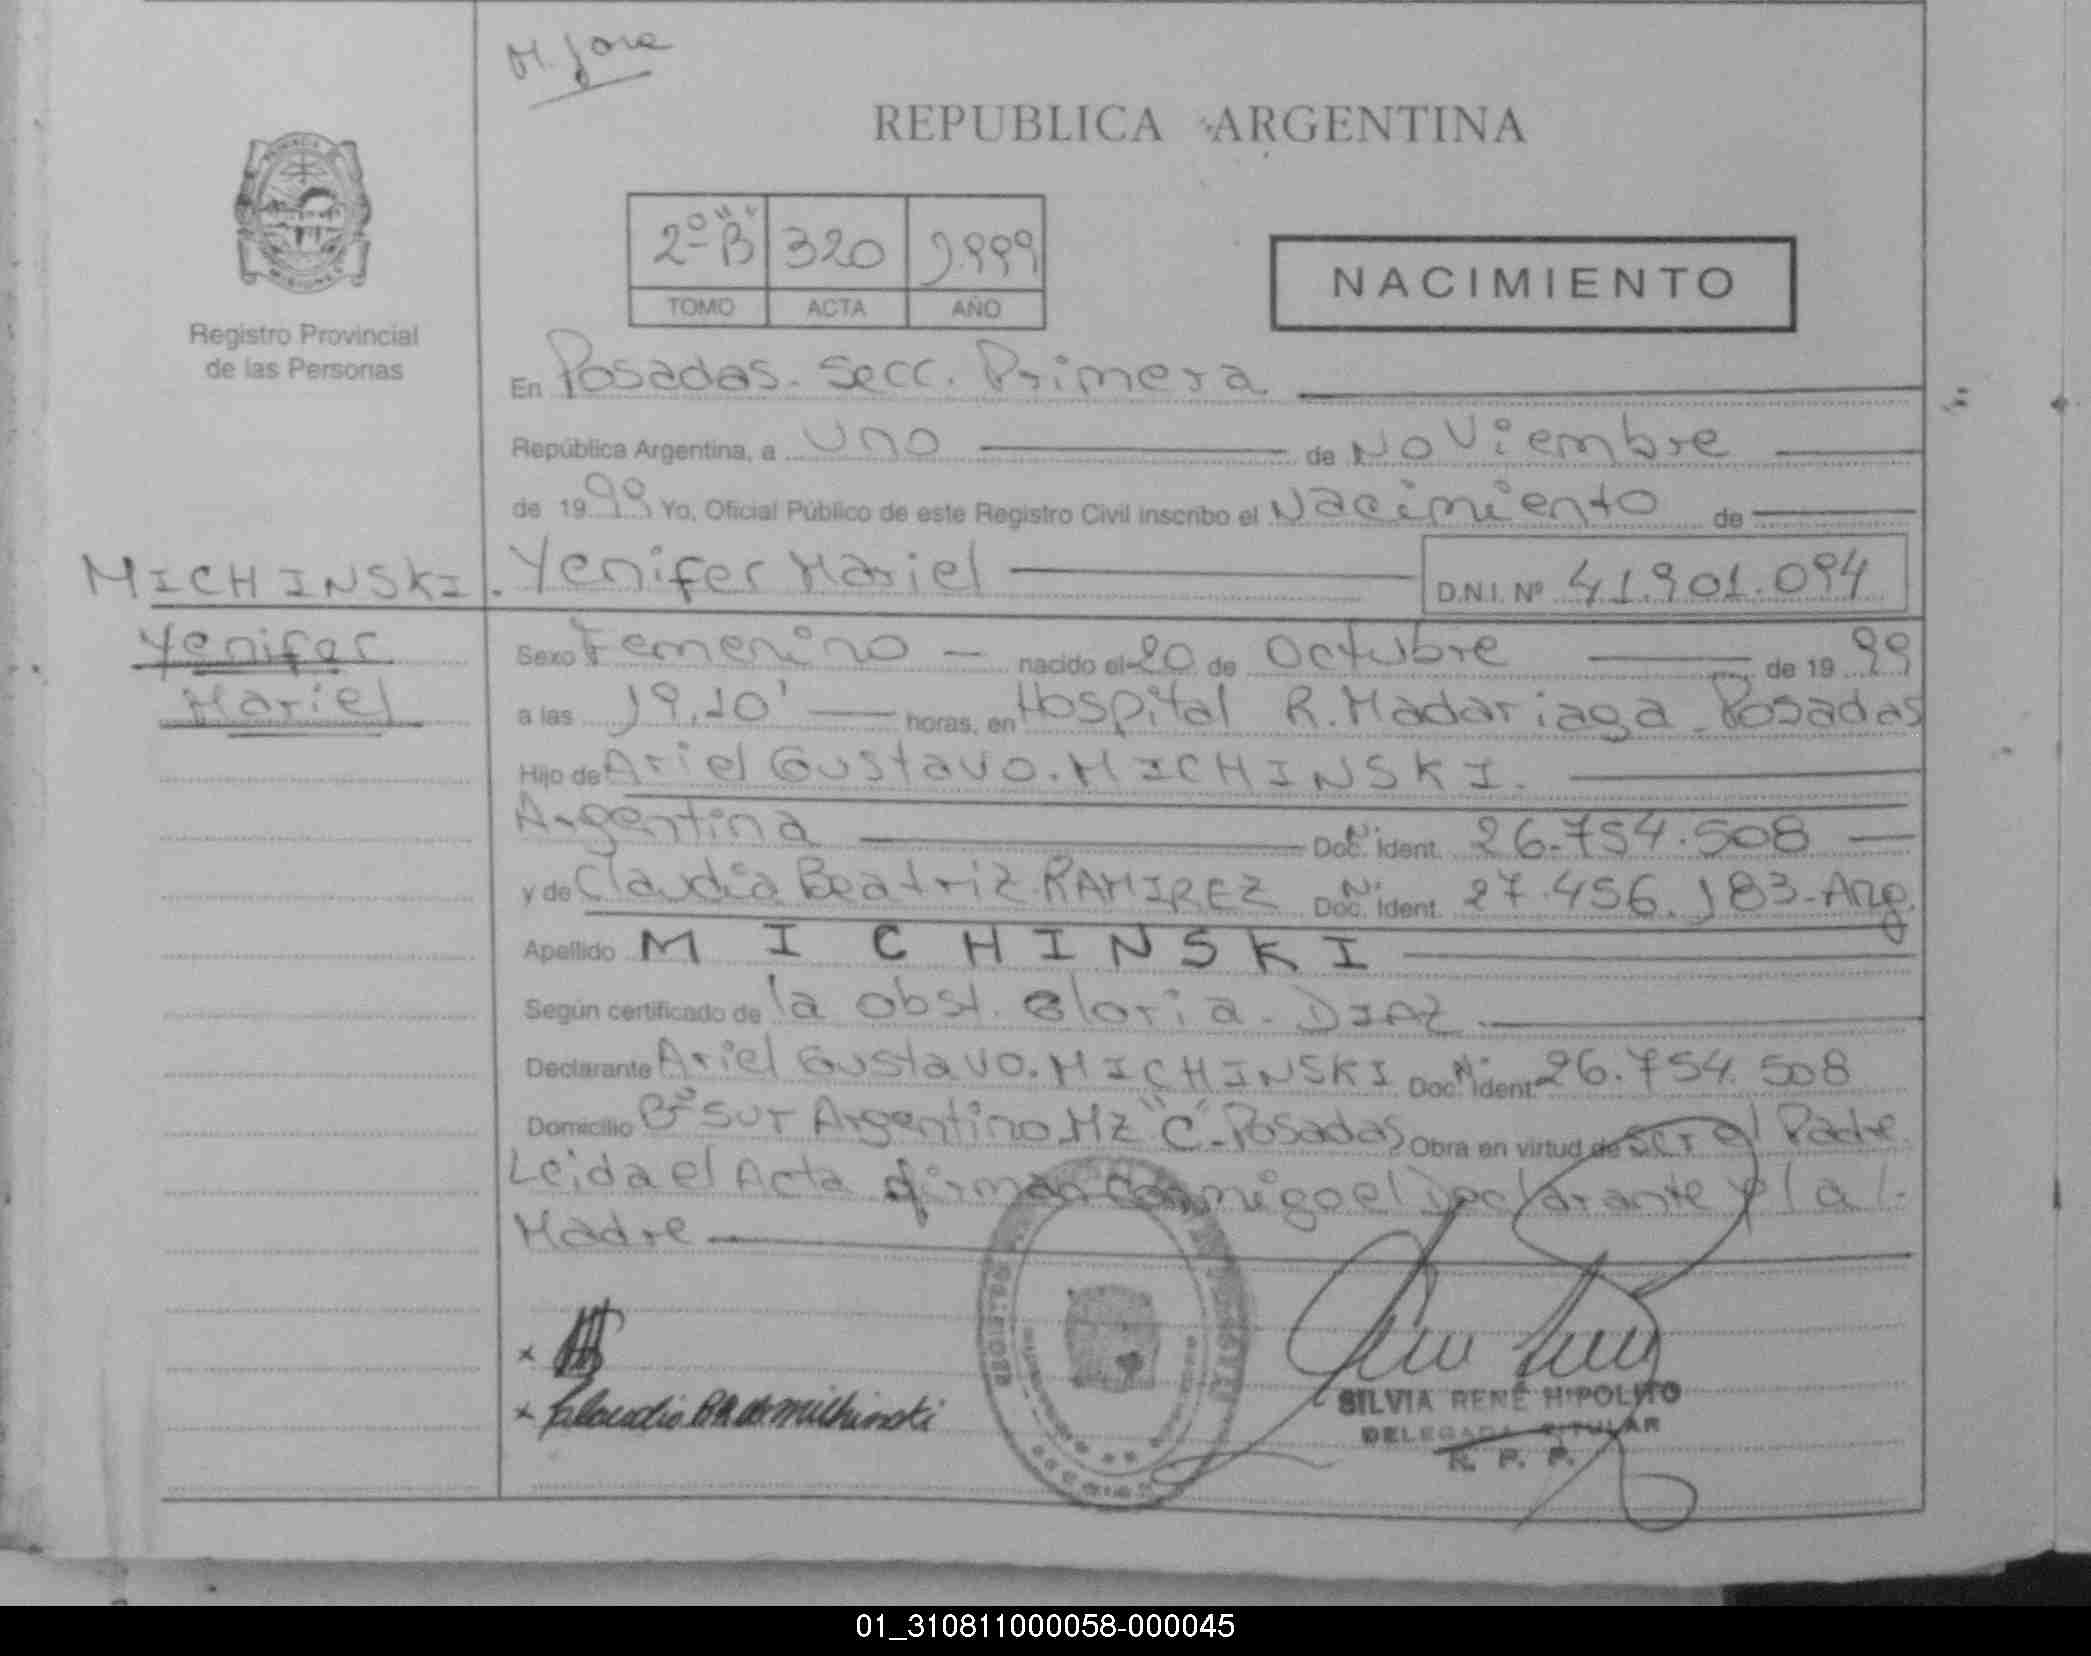 M. Jose
REPUBLICA ARGENTINA
2º "B" 320 1.999
TOMO ACTA AÑO
NACIMIENTO
Registro Provincial
de las Personas
En Posadas. Secc. Primera
República Argentina, a uno de Noviembre
de 1999 Yo, Oficial Público de este Registro Civil inscribo el Nacimiento de
MICHINSKI. Yenifer Mariel D.N.I. Nº 41.901.094
Yenifer
Mariel
Sexo Femenino nacido el 20 de Octubre de 1999
a las 19,10' horas, en Hospital R. Madariaga - Posadas
Hijo de Ariel Gustavo. MICHINSKI.
Argentina Doc. Nº Ident. 26.754.508
y de Claudia Beatriz RAMIREZ Doc. Nº Ident. 27.456.183-Arg.
Apellido MICHINSKI
Según certificado de la obst. Gloria. DIAZ
Declarante Ariel Gustavo. MICHINSKI Doc. Nº Ident. 26.754.508
Domicilio Bº Sur Argentino Mz "C"- Posadas Obra en virtud de ser el Padre.
Leida el Acta firman conmigo el Declarante y la
Madre
SILVIA RENÉ HIPOLITO
DELEGADA TITULAR
R. P. P.
01_310811000058-000045